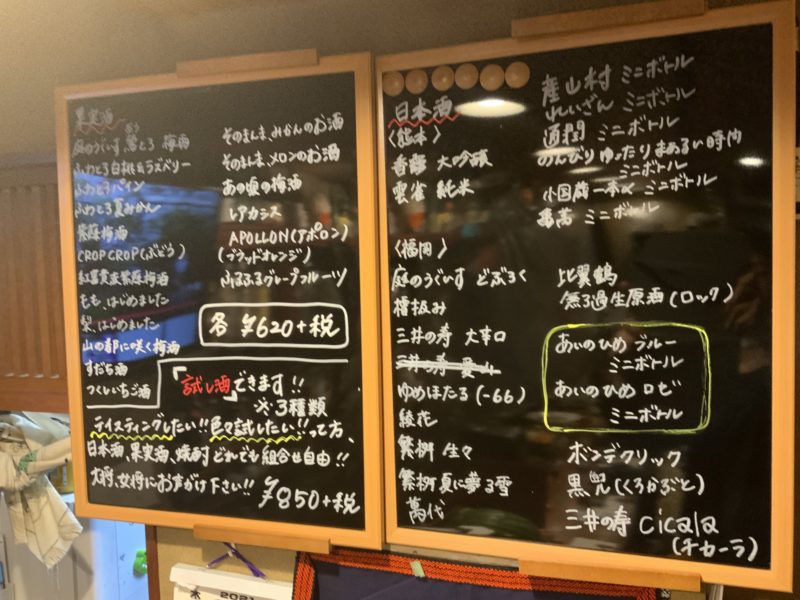 果実酒
庭のうぐいす 鶯とろ 梅酒
おう
ふわとろ白桃&ラズベリー
ふわとろパイン
ふわとろ夏みかん
紫蘇梅酒
CROP CROP(ぶどう)
紅富貴皇紫蘇梅酒
もも、はじめました
梨、はじめました
山の都に咲く梅酒
すだち酒
つくしいちご酒
そのまんま、みかんのお酒
そのまんま、メロンのお酒
あの頃の梅酒
レアカシス
APOLLON(アポロン)
(ブラッドオレンジ)
ふるふるグレープフルーツ
各 ¥620+税
「試し酒」できます!!
※3種類
テイスティングしたい!!色々試したい!!って方、
日本酒、果実酒、焼酎 どれでも組合せ自由!!
大将、女将にお声がけ下さい!! ¥850+税
日本酒
〈熊本〉
香露 大吟醸
雲雀 純米
産山村 ミニボトル
れいざん ミニボトル
通潤 ミニボトル
のんびりゆったりまあるい時間
ミニボトル
小国蔵一本〆 ミニボトル
ミニボトル
〈福岡〉
庭のうぐいす どぶろく
槽汲み
三井の寿 大辛口
三井の寿
ゆめほたる(-66)
綾花
繁桝 生々
繁桝 夏に夢る雪
萬代
比翼鶴
無ろ過生原酒(ロック)
あいのひめ ブルー
ミニボトル
あいのひめ ロゼ
ミニボトル
ボンデクリック
黒兜(くろかぶと)
三井の寿 cicala
(チカーラ)
木 2021